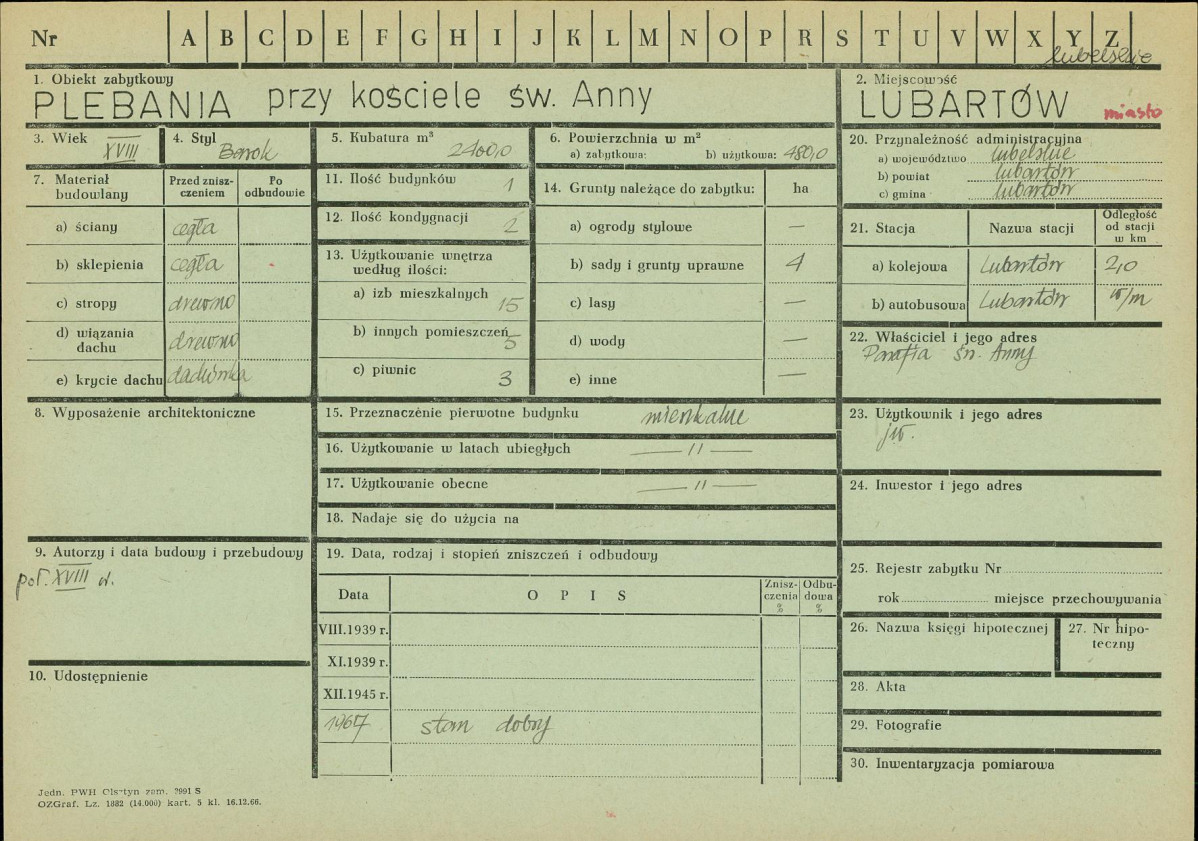 Nr A B C D E F G H I J K L M N O P R S T U V W X Y Z
lubelskie
1. Obiekt zabytkowy
PLEBANIA przy kościele św. Anny
2. Miejscowość
LUBARTÓW miasto
3. Wiek
XVIII
4. Styl
Barok
5. Kubatura m³
2400,0
6. Powierzchnia w m²
a) zabytkowa: b) użytkowa: 480,0
7. Materiał budowlany
Przed znisz-
czeniem
Po
odbudowie
a) ściany cegła
b) sklepienia cegła
c) stropy drewno
d) wiązania
dachu drewno
e) krycie dachu dachówka
11. Ilość budynków 1
12. Ilość kondygnacji 2
13. Użytkowanie wnętrza
według ilości:
a) izb mieszkalnych 15
b) innych pomieszczeń 5
c) piwnic 3
14. Grunty należące do zabytku: ha
a) ogrody stylowe —
b) sady i grunty uprawne 4
c) lasy —
d) wody —
e) inne —
20. Przynależność administracyjna
a) województwo lubelskie
b) powiat lubartów
c) gmina lubartów
21. Stacja
Nazwa stacji
Odległość
od stacji
w km
a) kolejowa Lubartów 2,0
b) autobusowa Lubartów w/m
22. Właściciel i jego adres
Parafia św. Anny
8. Wyposażenie architektoniczne
15. Przeznaczenie pierwotne budynku mieszkalne
16. Użytkowanie w latach ubiegłych — 11 —
17. Użytkowanie obecne — 11 —
18. Nadaje się do użycia na
23. Użytkownik i jego adres
jw.
24. Inwestor i jego adres
9. Autorzy i data budowy i przebudowy
poł. XVIII w.
19. Data, rodzaj i stopień zniszczeń i odbudowy
Data
O P I S
Znisz-
czenia
%
Odbu-
dowa
%
VIII.1939 r.
XI.1939 r.
XII.1945 r.
1967 stan dobry
25. Rejestr zabytku Nr
rok miejsce przechowywania
26. Nazwa księgi hipotecznej
27. Nr hipo-
teczny
10. Udostępnienie
28. Akta
29. Fotografie
30. Inwentaryzacja pomiarowa
Jedn. PWH Olsztyn zam. 2991 S
OZGraf. Lz. 1882 (14.000) kart. 5 kl. 16.12.66.